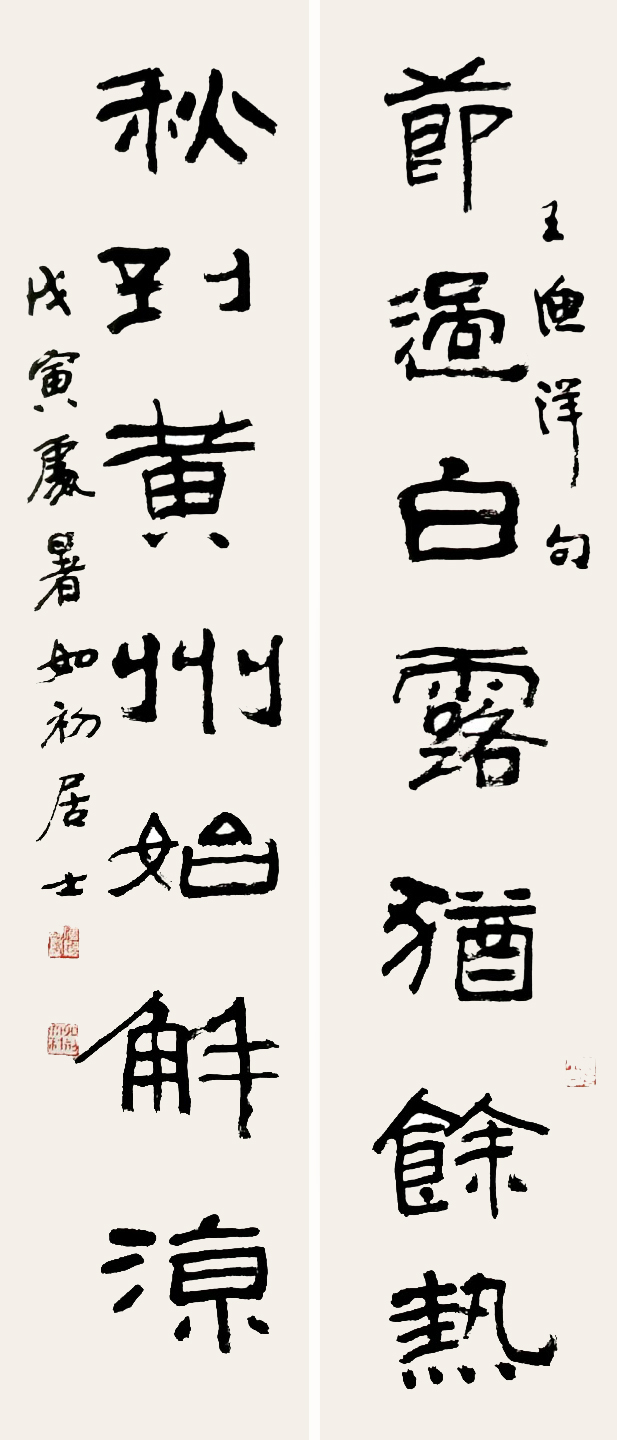 王漁洋句
節過白露猶餘熱
秋到黃州始解涼
戊寅處暑如初居士